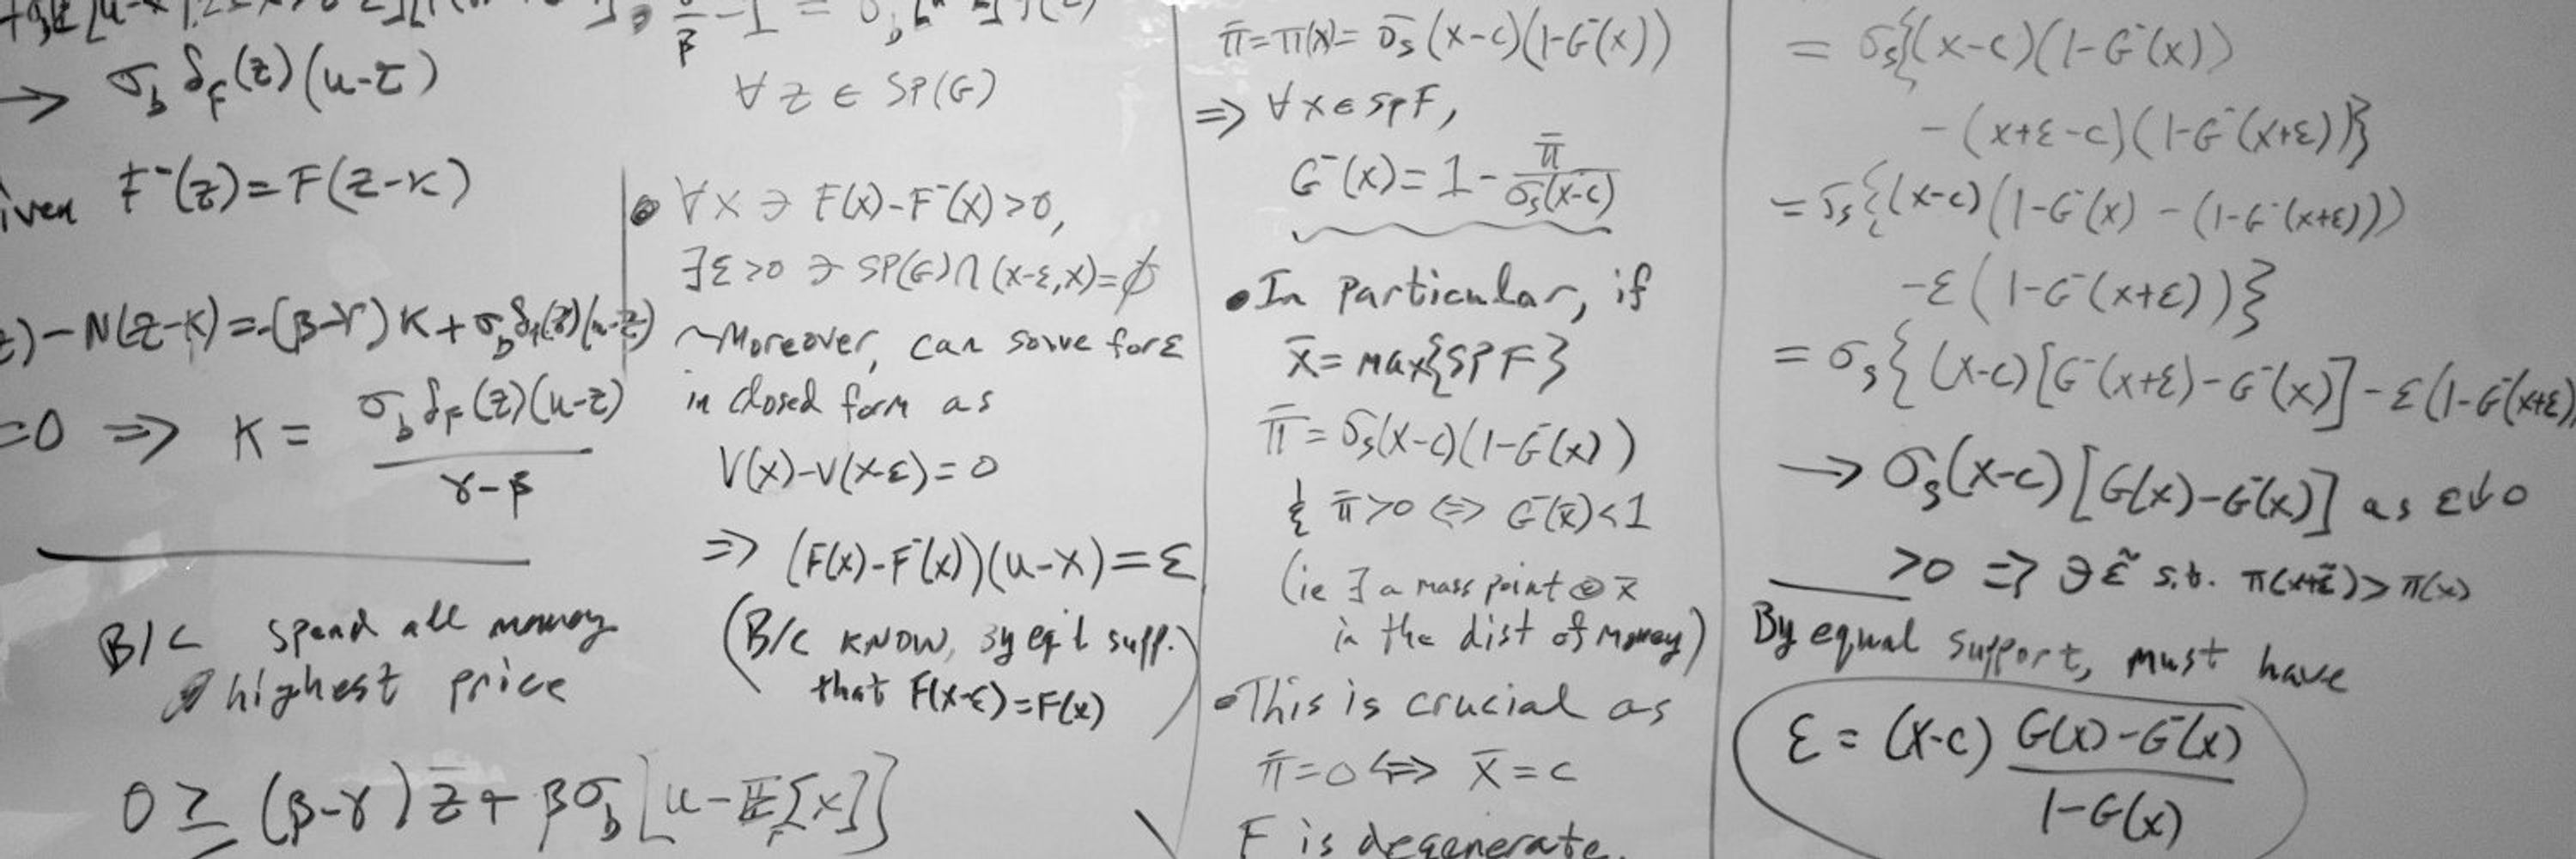 → σ_b δ_F(z)(u-z)
F⁻(z)=F(z-κ)
-N(z-κ)=(β-γ)κ+σ_b δ_F(z)(u-z)
=0 ⇒ κ = σ_b δ_F(z)(u-z) / γ-β
B/C spend all money
@ highest price
0 ≥ (β-γ)z̄ + βσ_b[u-E_F[x]]
∀ z ∈ SP(G)
• ∀x ∋ F(x)-F⁻(x)>0,
∃ε>0 ∋ SP(G)∩(x-ε,x)=∅
~Moreover, can solve for ε
in closed form as
V(x)-V(x-ε)=0
⇒ (F(x)-F⁻(x))(u-x)=ε
(B/C KNOW, by eq'l supp.
that F(x-ε)=F(x)
π̄=π(x)=σ_s(x-c)(1-G⁻(x))
⇒ ∀x∈SPF,
G⁻(x)=1- π̄ / σ_s(x-c)
• In particular, if
x̄=max{SPF}
π̄=σ_s(x-c)(1-G⁻(x))
& π̄>0 ⇔ G⁻(x̄)<1
(ie ∃ a mass point @ x̄
in the dist of money)
• This is crucial as
π̄=0 ⇔ x̄=c
F is degenerate.
= σ_s{(x-c)(1-G⁻(x))
-(x+ε-c)(1-G⁻(x+ε))}
=σ_s{(x-c)(1-G⁻(x)-(1-G⁻(x+ε)))
-ε(1-G⁻(x+ε))}
=σ_s{(x-c)[G⁻(x+ε)-G⁻(x)]-ε(1-G⁻(x+ε)
→ σ_s(x-c)[G(x)-G⁻(x)] as ε↓0
>0 ⇒ ∃ ε̃ s.t. π(x+ε̃)>π(x)
By equal support, must have
ε=(x-c) G(x)-G⁻(x) / 1-G(x)